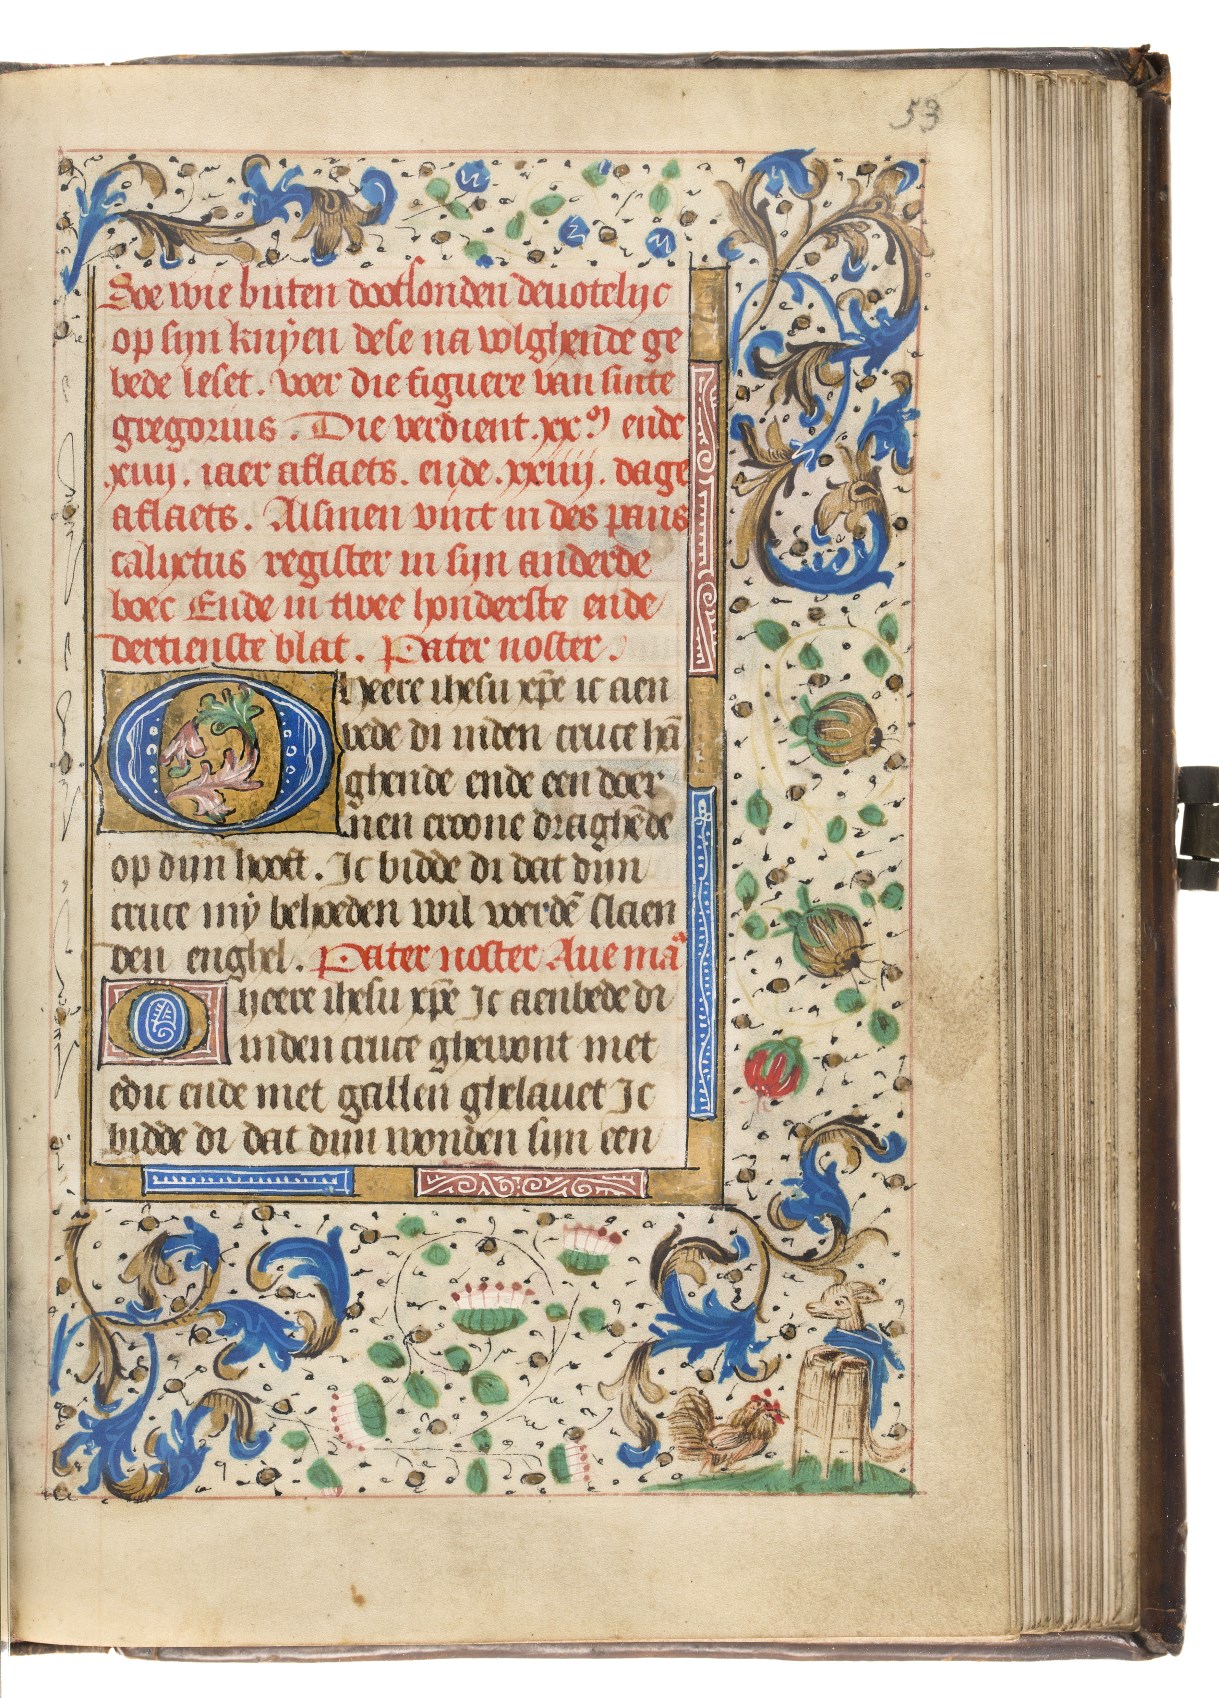 53
Soe wie buten dootsonden devotelijc
op sijn knÿen dese na volghende ge
bede leset. voer die figuere van sinte
gregorius. Die verdient .xx.m ende
.xiiij. iaer aflaets. ende .xxiiij. dage
aflaets. Alsmen vint in des paus
calixtus register in sijn anderde
boec Ende in twee honderste ende
dertienste blat. Pater noster.
O heere ihesu xp̄e ic aen
bede di inden cruce hā
ghende ende een doer
nen croone draghēde
op dijn hooft. Ic bidde di dat dijn
cruce mÿ behoeden wil voerdē slaen
den enghel. Pater noster Ave maa
O heere ihesu xp̄e Ic aenbede di
inden cruce ghewont met
edic ende met gallen ghelauet Ic
bidde di dat dijn wonden sijn een